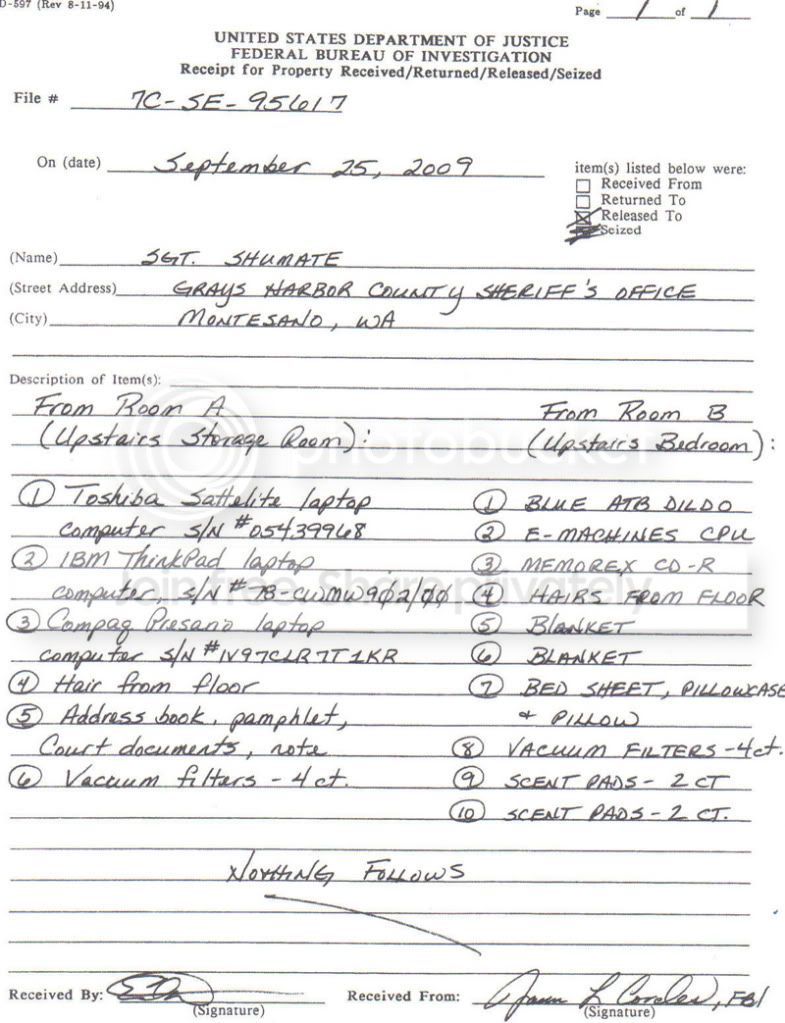 D-597 (Rev 8-11-94)
Page 1 of 1
UNITED STATES DEPARTMENT OF JUSTICE
FEDERAL BUREAU OF INVESTIGATION
Receipt for Property Received/Returned/Released/Seized
File # 7C-SE-95617
On (date) September 25, 2009
item(s) listed below were:
Received From
Returned To
Released To
Seized
(Name) SGT. SHUMATE
(Street Address) GRAYS HARBOR COUNTY SHERIFF'S OFFICE
(City) MONTESANO, WA
Description of Item(s):
From Room A
(Upstairs Storage Room):
① Toshiba Sattelite laptop
computer S/N #05439968
② IBM ThinkPad laptop
computer, S/N #78-CWMW902/00
③ Compaq Presario laptop
computer S/N #1V97CLR7T1KR
④ Hair from floor
⑤ Address book, pamphlet,
Court documents, note
⑥ Vacuum filters - 4 ct.
From Room B
(Upstairs Bedroom):
① BLUE ATB DILDO
② E-MACHINES CPU
③ MEMOREX CD-R
④ HAIRS FROM FLOOR
⑤ BLANKET
⑥ BLANKET
⑦ BED SHEET, PILLOWCASE
+ PILLOW
⑧ VACUUM FILTERS - 4ct.
⑨ SCENT PADS - 2 CT
⑩ SCENT PADS - 2 CT.
NOTHING FOLLOWS
photobucket
Join free. Share privately
Received By:
(Signature)
Received From: L , FBI
(Signature)